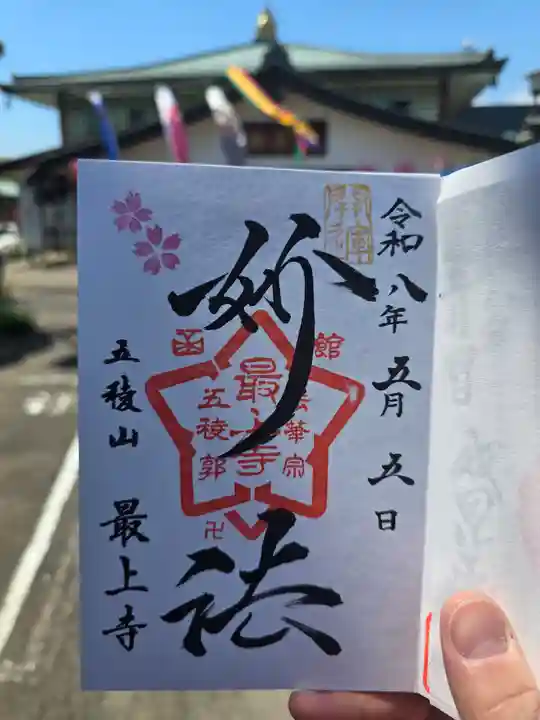 令和八年五月五日
妙法
函館
法華宗
最上寺
五稜郭
卍
五稜山 最上寺